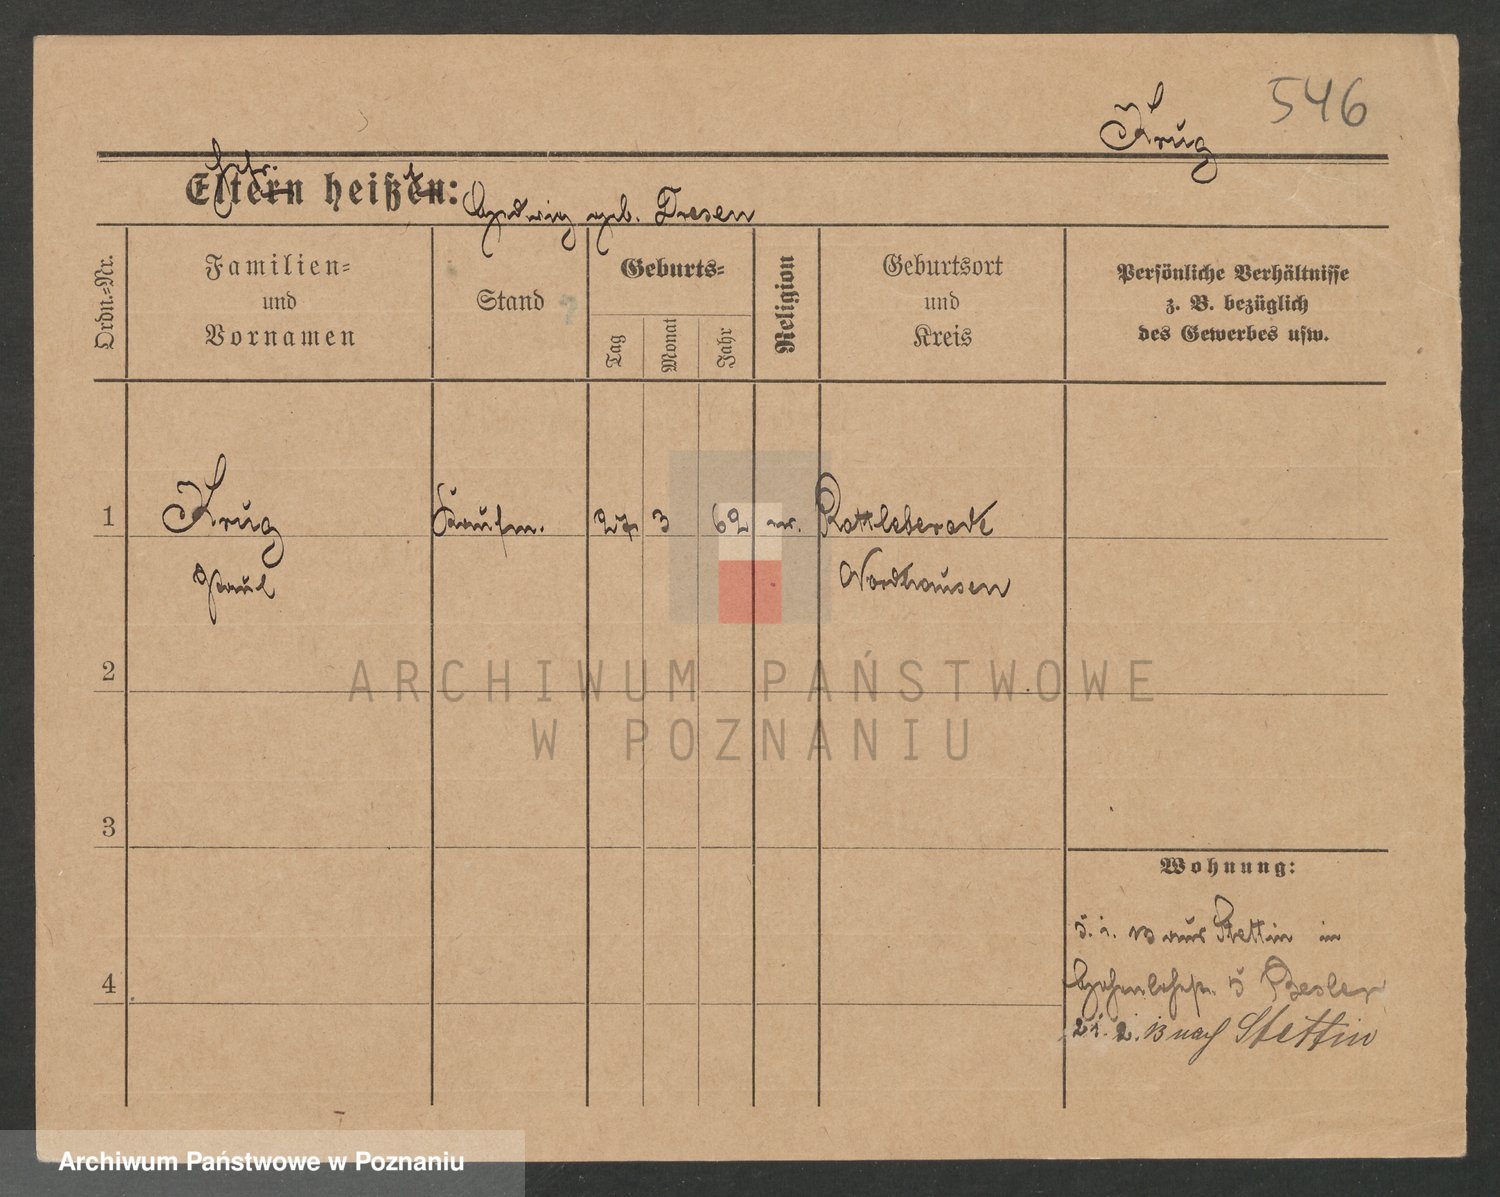 546
Krug
Ehefr.
Eltern heißen: Hedwig geb. Dresen
Ordn.-Nr.
Familien-
und
Vornamen
Stand
Geburts-
Tag
Monat
Jahr
Religion
Geburtsort
und
Kreis
Persönliche Verhältnisse
z. B. bezüglich
des Gewerbes usw.
1 Krug Kaufm. 27 3 62 ev. Rottleberode
Paul Nordhausen
2
3
4
ARCHIWUM PAŃSTWOWE
W POZNANIU
Wohnung:
5. 1. 13 aus Stettin in
Hohenlohestr. 5
21. 2. 13 nach Stettin
Archiwum Państwowe w Poznaniu